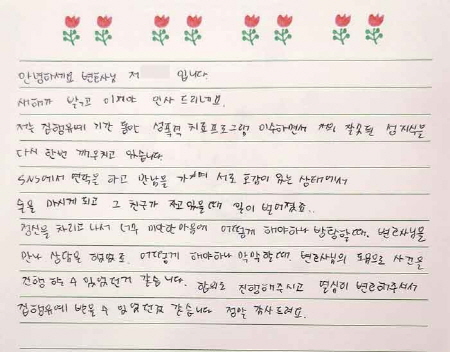 안녕하세요 변호사님 저 입니다.
새해가 밝고 이제야 인사 드리네요.
저는 집행유예 기간 동안 성폭력 치료프로그램 이수하면서 저의 잘못된 성지식을
다시 한번 깨우치고 있습니다.
SNS에서 연락을 하고 만남을 가지며 서로 호감이 있는 상태에서
술을 마시게 되고 그 친구가 자고있을때 일이 벌어졌죠..
정신을 차리고 나서 너무 미안한마음에 어떻게 해야하나 방황할때, 변호사님을
만나 상담을 했었고, 어떻게 해야하나 막막할때, 변호사님의 도움으로 사건을
진행 할 수 있었던거 같습니다. 합의도 진행해주시고 열심히 변호해주셔서
집행유예 받을 수 있었던것 같습니다 정말 감사드려요.